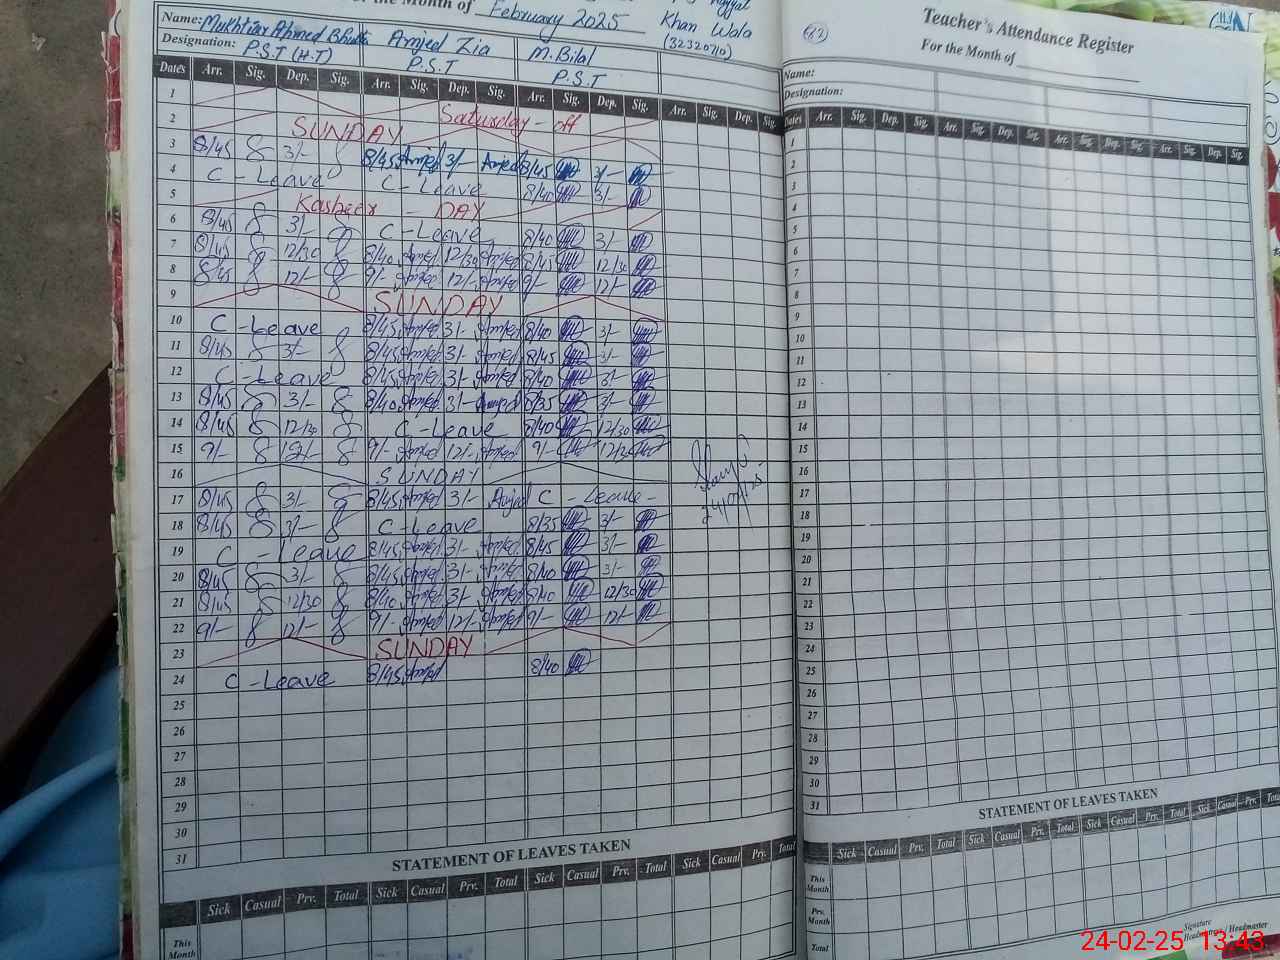 for the Month of February 2025
Khan Wala
(32320710)
Name: Mukhtiar Ahmed Bhutta Amjed Zia M. Bilal
Designation: P.S.T (H.T) P.S.T P.S.T
Dates Arr. Sig. Dep. Sig. Arr. Sig. Dep. Sig. Arr. Sig. Dep. Sig. Arr. Sig. Dep. Sig.
1 Saturday - off
2 SUNDAY
3 8/45 3/- 8/45 Amjed 3/- Amjed 8/45 3/-
4 C - Leave C - Leave 8/40 3/-
5 Kasheer - DAY
6 8/45 3/- C - Leave 8/40 3/-
7 8/45 12/30 8/40 Amjed 12/30 Amjed 8/45 12/30
8 8/45 12/- 9/- Amjed 12/- Amjed 9/- 12/-
9 SUNDAY
10 C - Leave 8/45 Amjed 3/- Amjed 8/40 3/-
11 8/45 3/- 8/45 Amjed 3/- Amjed 8/45 3/-
12 C - Leave 8/45 Amjed 3/- Amjed 8/40 3/-
13 8/45 3/- 8/40 Amjed 3/- Amjed 8/35 3/-
14 8/45 12/30 C - Leave 8/40 12/30
15 9/- 12/- 9/- Amjed 12/- Amjed 9/-
16 SUNDAY
17 8/45 3/- 8/45 Amjed 3/- Amjed C - Leave -
18 8/45 3/- C - Leave 8/35 3/-
19 C - Leave 8/45 Amjed 3/- Amjed 8/45 3/-
20 8/45 3/- 8/45 Amjed 3/- Amjed 8/40 3/-
21 8/45 12/30 8/40 Amjed 3/- Amjed 8/40 12/30
22 9/- 12/- 9/- Amjed 12/- Amjed 9/- 12/-
23 SUNDAY
24 C - Leave 8/45 Amjed 8/40
25
26
27
28
29
30
31
24/02/25
STATEMENT OF LEAVES TAKEN
Sick Casual Prv. Total Sick Casual Prv. Total Sick Casual Prv. Total Sick Casual Prv. Total
This Month
(82)
Teacher's Attendance Register
For the Month of
Name:
Designation:
Dates Arr. Sig. Dep. Sig. Arr. Sig. Dep. Sig. Arr. Sig. Dep. Sig. Arr. Sig. Dep. Sig.
1
2
3
4
5
6
7
8
9
10
11
12
13
14
15
16
17
18
19
20
21
22
23
24
25
26
27
28
29
30
31
STATEMENT OF LEAVES TAKEN
Sick Casual Prv. Total Sick Casual Prv. Total Sick Casual Prv. Total Sick Casual Prv. Total
This Month
Prv. Month
Total
Signature
Headmistress / Headmaster
24-02-25 13:43